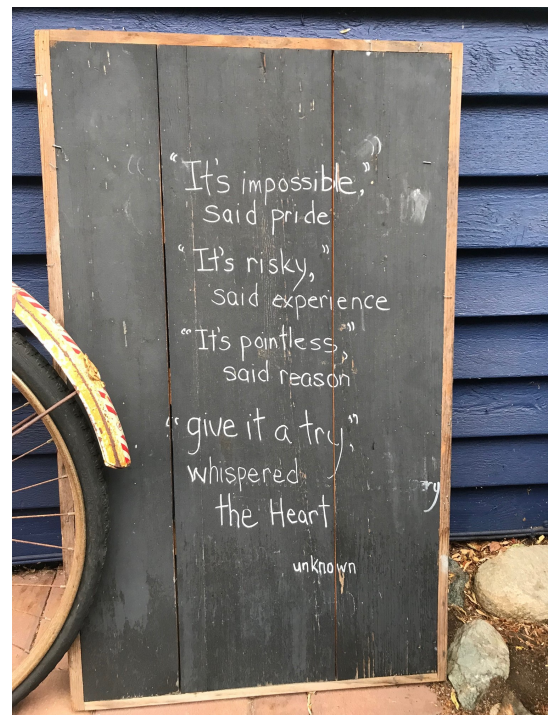 "It's impossible,"
said pride
"It's risky,"
said experience
"It's pointless,"
said reason
"give it a try,"
whispered
the Heart
ry
unknown